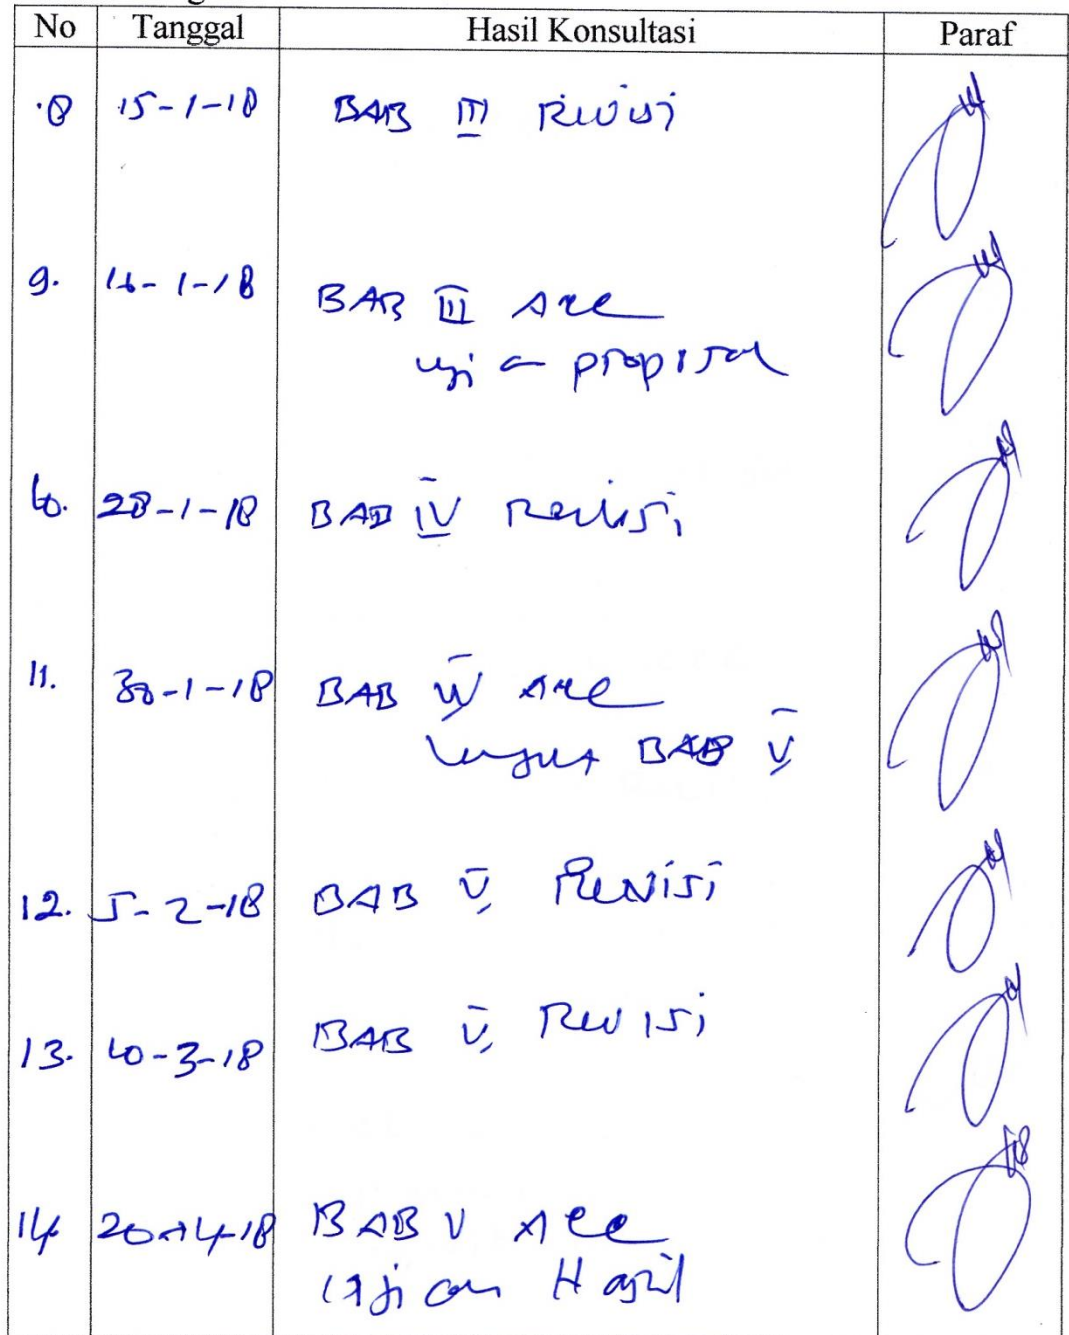 No Tanggal Hasil Konsultasi Paraf
8 15-1-18 BAB III Revisi
9. 16-1-18 BAB III Acc
ujian proposal
10. 28-1-18 BAB IV Revisi
11. 30-1-18 BAB IV Acc
Lanjut BAB V
12. 5-2-18 BAB V Revisi
13. 10-3-18 BAB V Revisi
14 20-4-18 BAB V Acc
Ujian Hasil